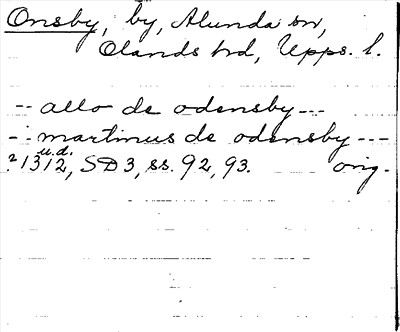 Onsby, by, Alunda sn,
Olands hd, Upps. l.
-- allo de odensby ---
-- martinus de odensby ---
u.d.
?1312, SD3, ss. 92, 93. orig.